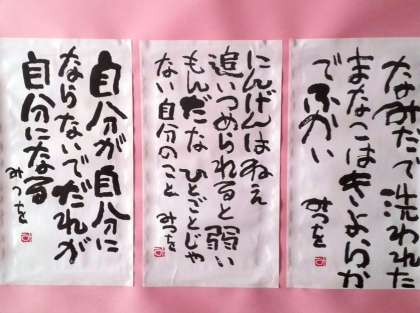 なみだで洗われた
まなこはきよらか
でふかい
みつを
にんげんはねぇ
追いつめられると弱い
もんだな ひとごとじゃ
ない自分のこと
みつを
自分が自分に
ならないでだれが
自分になる
みつを